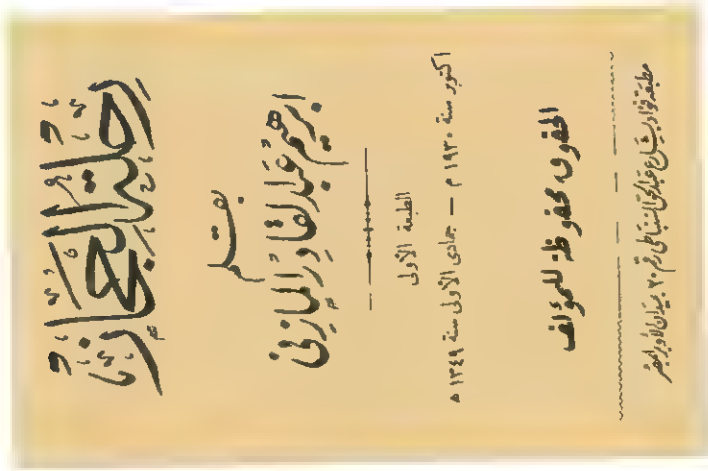 رحلة الحجاز
بقلم
ابرهيم عبد القادر المازني
الطبعة الأولى
اكتوبر سنة ١٩٣٠ م — جمادى الأولى سنة ١٣٤٩ ه
الحقوق محفوظة للمؤلف
مطبعة فؤاد بشارع عبد الحق السنباطى رقم ٣٠ بميدان الاوبرا بمصر